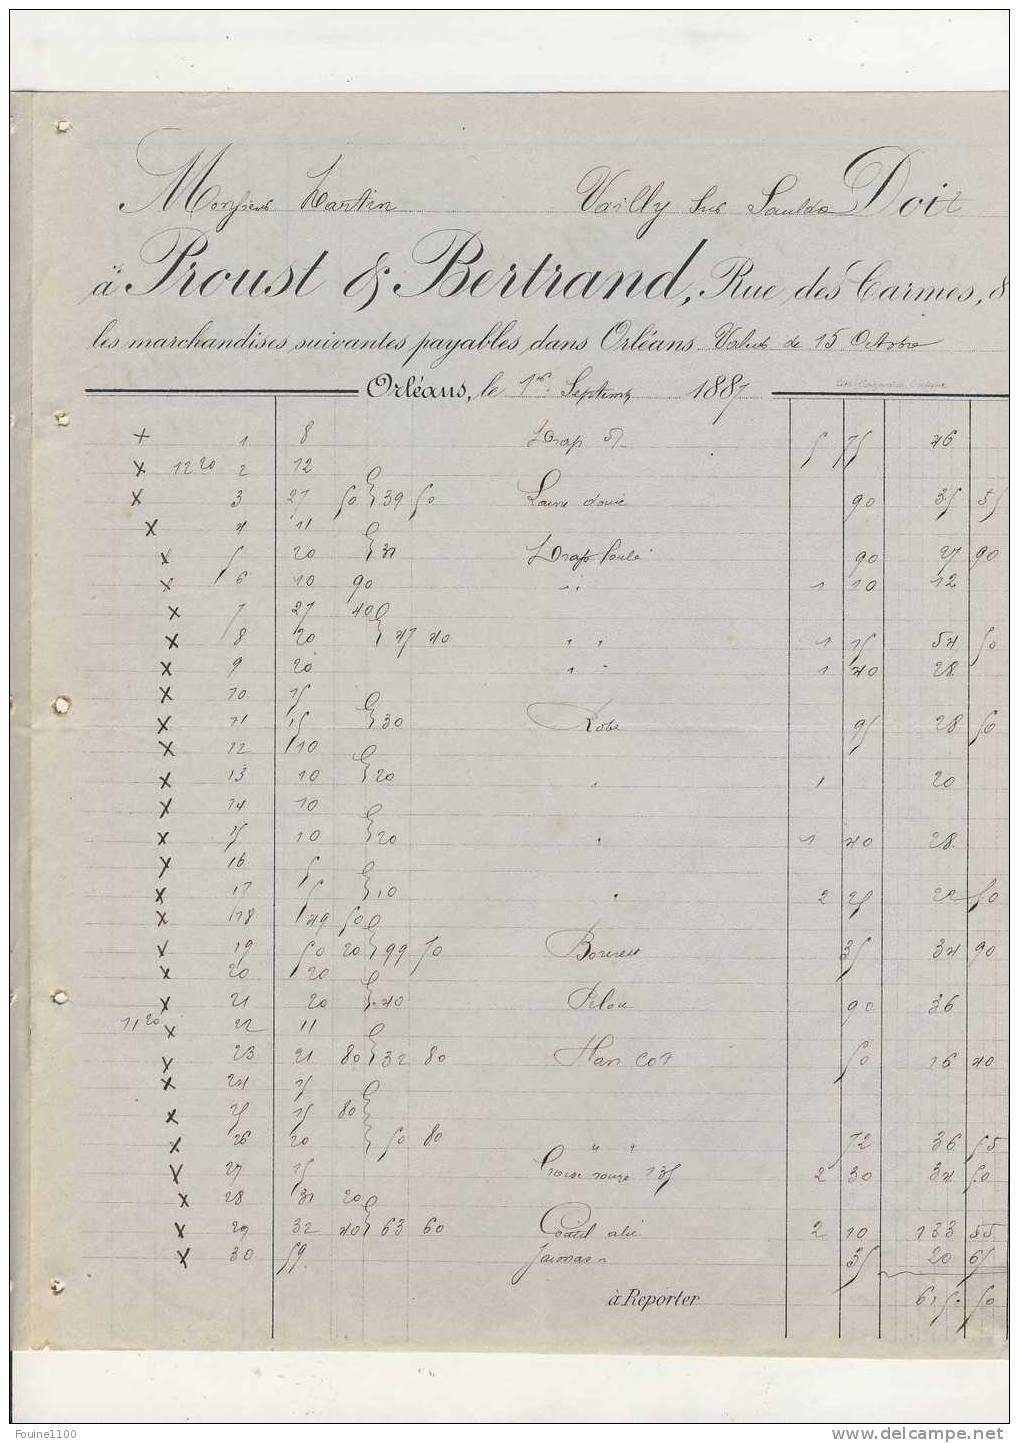 Monsieur Martin Vailly Sur Sauldre Doit
à Proust & Bertrand, Rue des Carmes, 8
les marchandises suivantes payables dans Orléans Valeur de 15 Octobre
Orléans, le 1er Septembre 1887
+ 1 8 Drap 5 75 46
x 12 20 2 12
x 3 27 50 39 50 Laine 90 35 55
x 4 11
x 5 20 31 Drap foulé 90 27 90
x 6 10 90 " 1 10 12
x 7 27 40
x 8 20 47 40 " " 1 15 54 50
x 9 20 " " 1 40 28
x 10 15
x 11 15 30 Robe 95 28 50
x 12 10
x 13 10 20 " 1 20
x 14 10
x 15 10 20 " 1 40 28
x 16 5
x 17 5 10 " 2 25 22 50
x 18 49 50
x 19 50 20 99 70 35 34 90
x 20 20
x 21 20 40 Pilou 90 36
11 20 x 22 11
x 23 21 80 32 80 50 16 40
x 24 15
x 25 15 80
x 26 20 50 80 " " 72 36 55
x 27 15 rouge 135 2 30 34 50
x 28 31 20
x 29 32 40 63 60 Coutil 2 10 133 55
x 30 59 35 20 65
à Reporter 615 50
Foune1100
www.delcampe.net